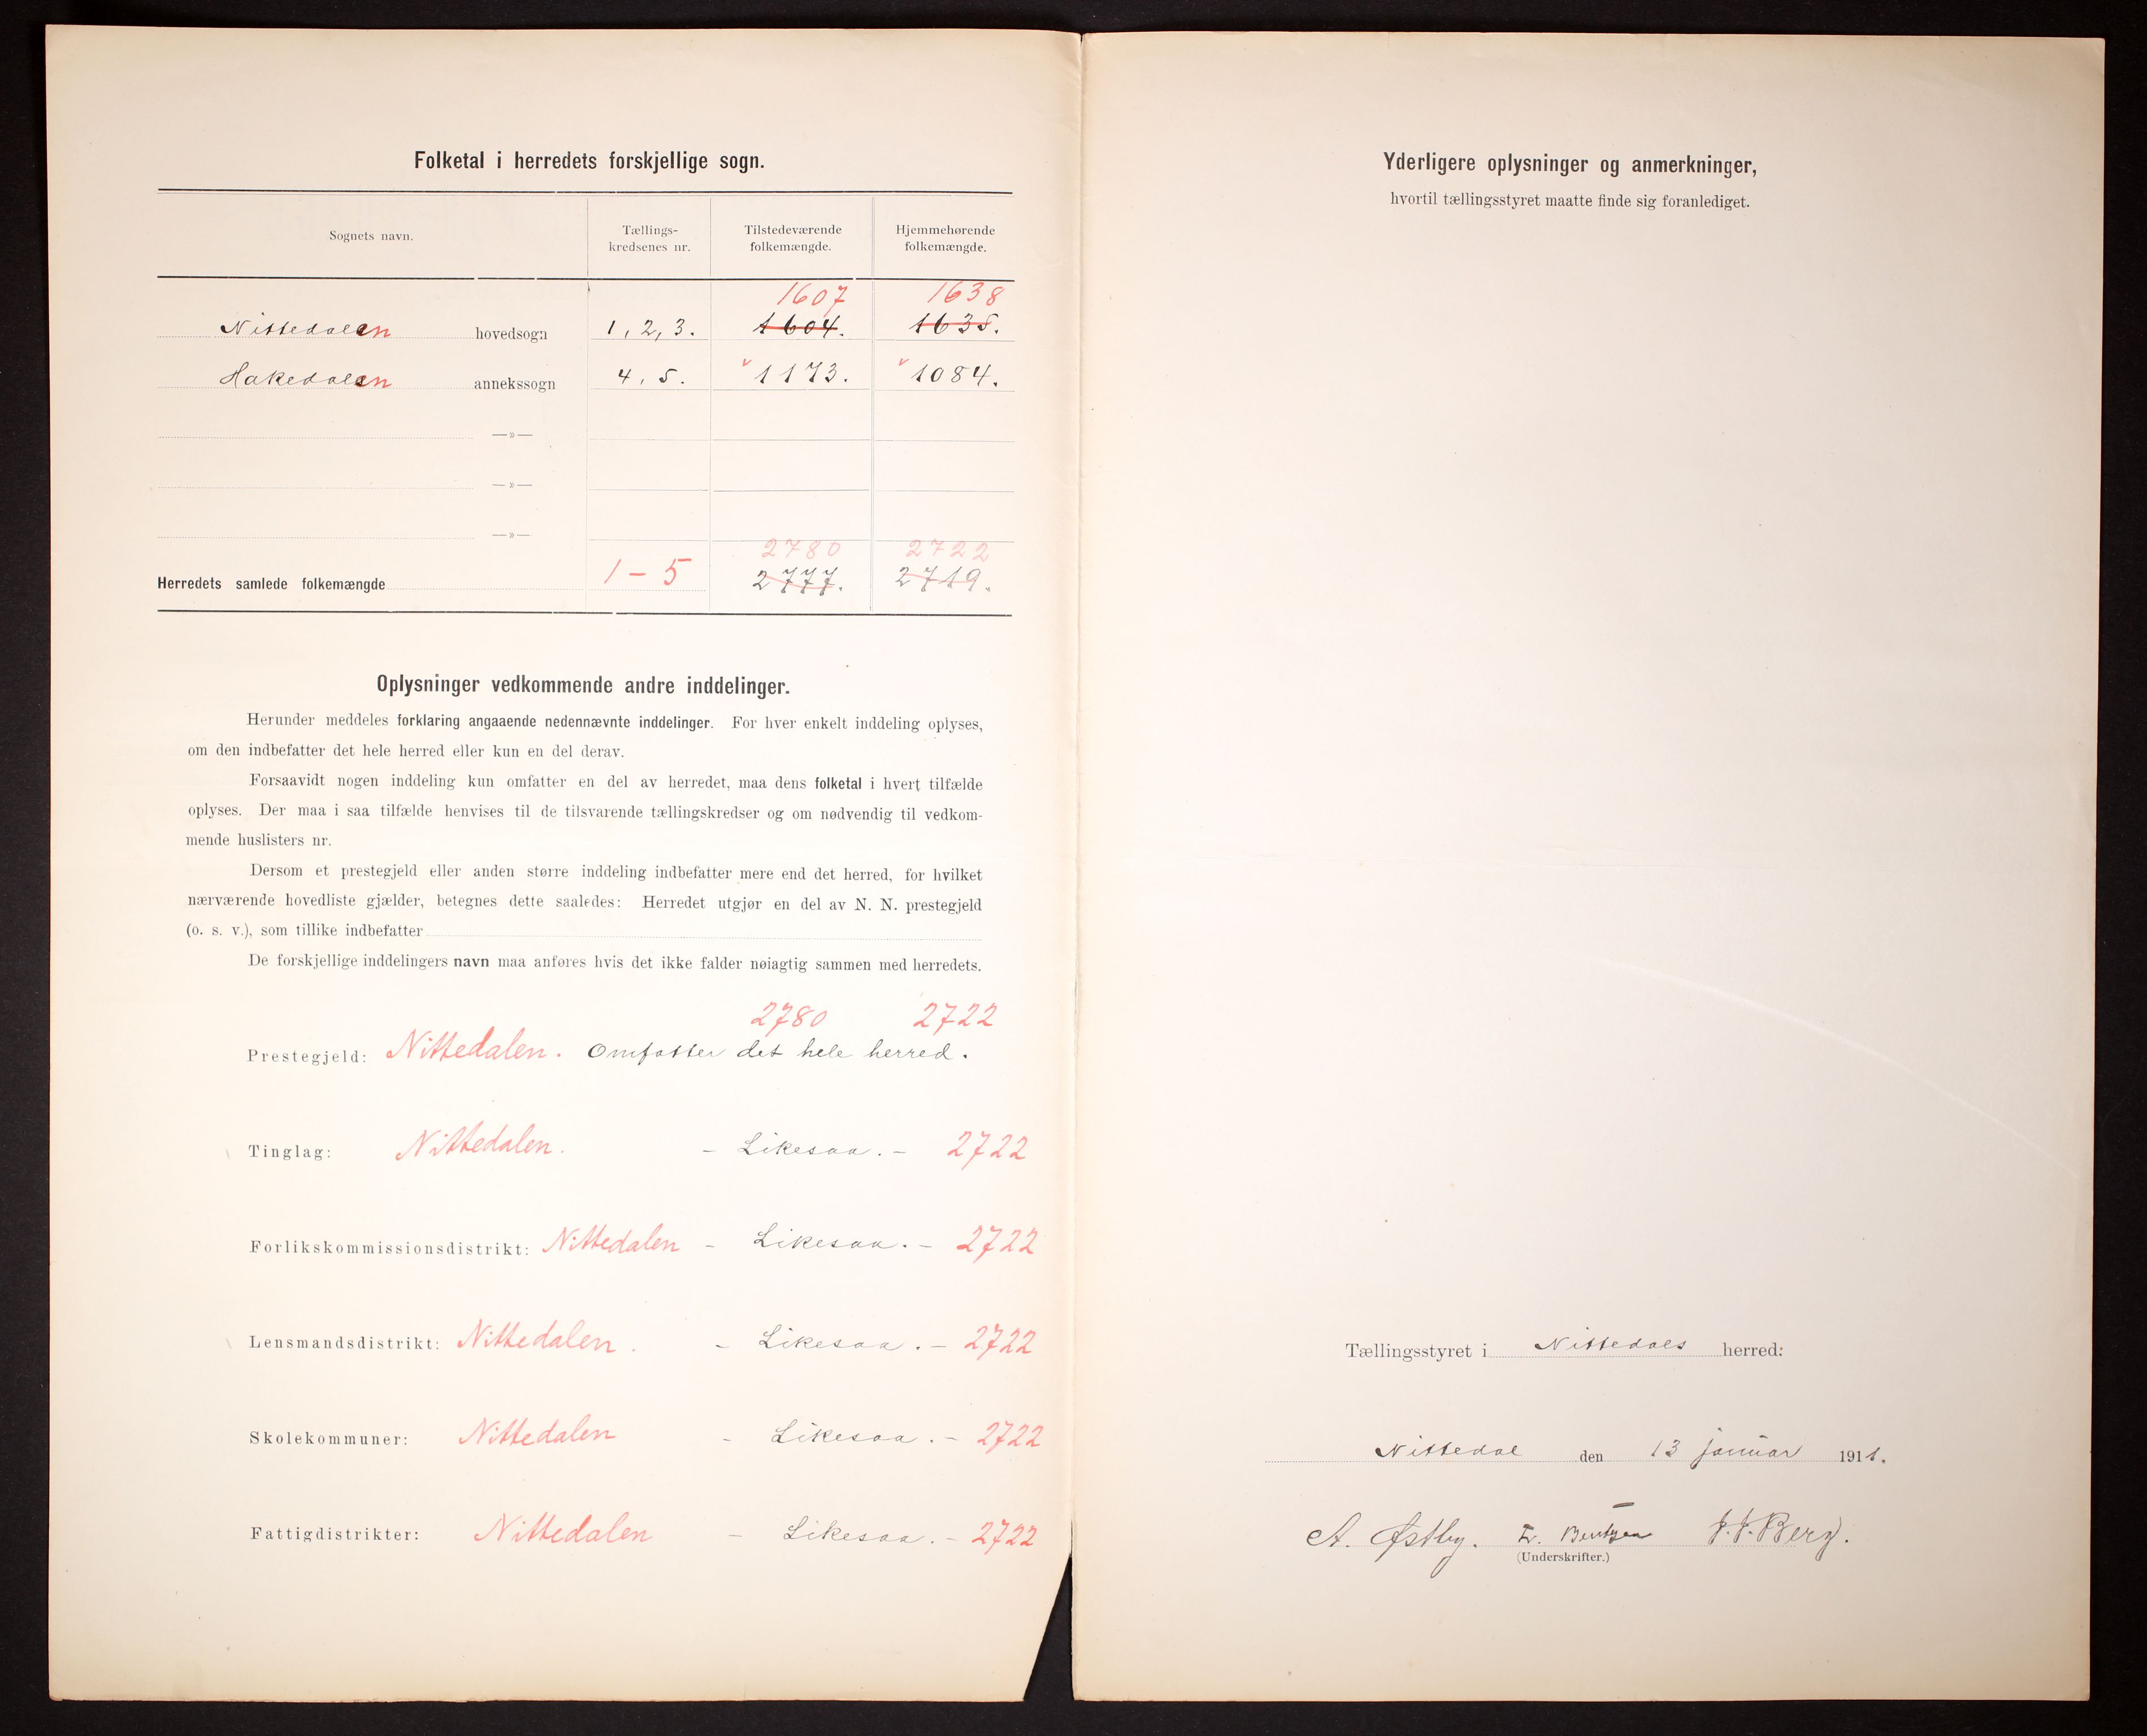 Folketal i herredets forskjellige sogn.
Sognets navn.
Tællings-
kredsenes nr.
Tilstedeværende
folkemængde.
Hjemmehørende
folkemængde.
1607 1638
Nittedalen hovedsogn 1, 2, 3. 1604. 1635.
Hakedalen annekssogn 4, 5. v 1173. v 1084.
—»—
—»—
—»—
2780 2722
Herredets samlede folkemængde 1 – 5 2777. 2719.
Oplysninger vedkommende andre inddelinger.
Herunder meddeles forklaring angaaende nedennævnte inddelinger. For hver enkelt inddeling oplyses,
om den indbefatter det hele herred eller kun en del derav.
Forsaavidt nogen inddeling kun omfatter en del av herredet, maa dens folketal i hvert tilfælde
oplyses. Der maa i saa tilfælde henvises til de tilsvarende tællingskredser og om nødvendig til vedkom-
mende huslisters nr.
Dersom et prestegjeld eller anden større inddeling indbefatter mere end det herred, for hvilket
nærværende hovedliste gjælder, betegnes dette saaledes: Herredet utgjør en del av N. N. prestegjeld
(o. s. v.), som tillike indbefatter
De forskjellige inddelingers navn maa anføres hvis det ikke falder nøiagtig sammen med herredets.
2780 2722
Prestegjeld: Nittedalen. Omfatter det hele herred.
Tinglag: Nittedalen. – Likesaa. – 2722
Forlikskommissionsdistrikt: Nittedalen – Likesaa. – 2722
Lensmandsdistrikt: Nittedalen. – Likesaa. – 2722
Skolekommuner: Nittedalen – Likesaa. – 2722
Fattigdistrikter: Nittedalen – Likesaa. – 2722
Yderligere oplysninger og anmerkninger,
hvortil tællingsstyret maatte finde sig foranlediget.
Tællingsstyret i Nittedals herred:
Nittedal den 13 januar 1911.
A. Østby. Bentzen J. J. Berg.
(Underskrifter.)